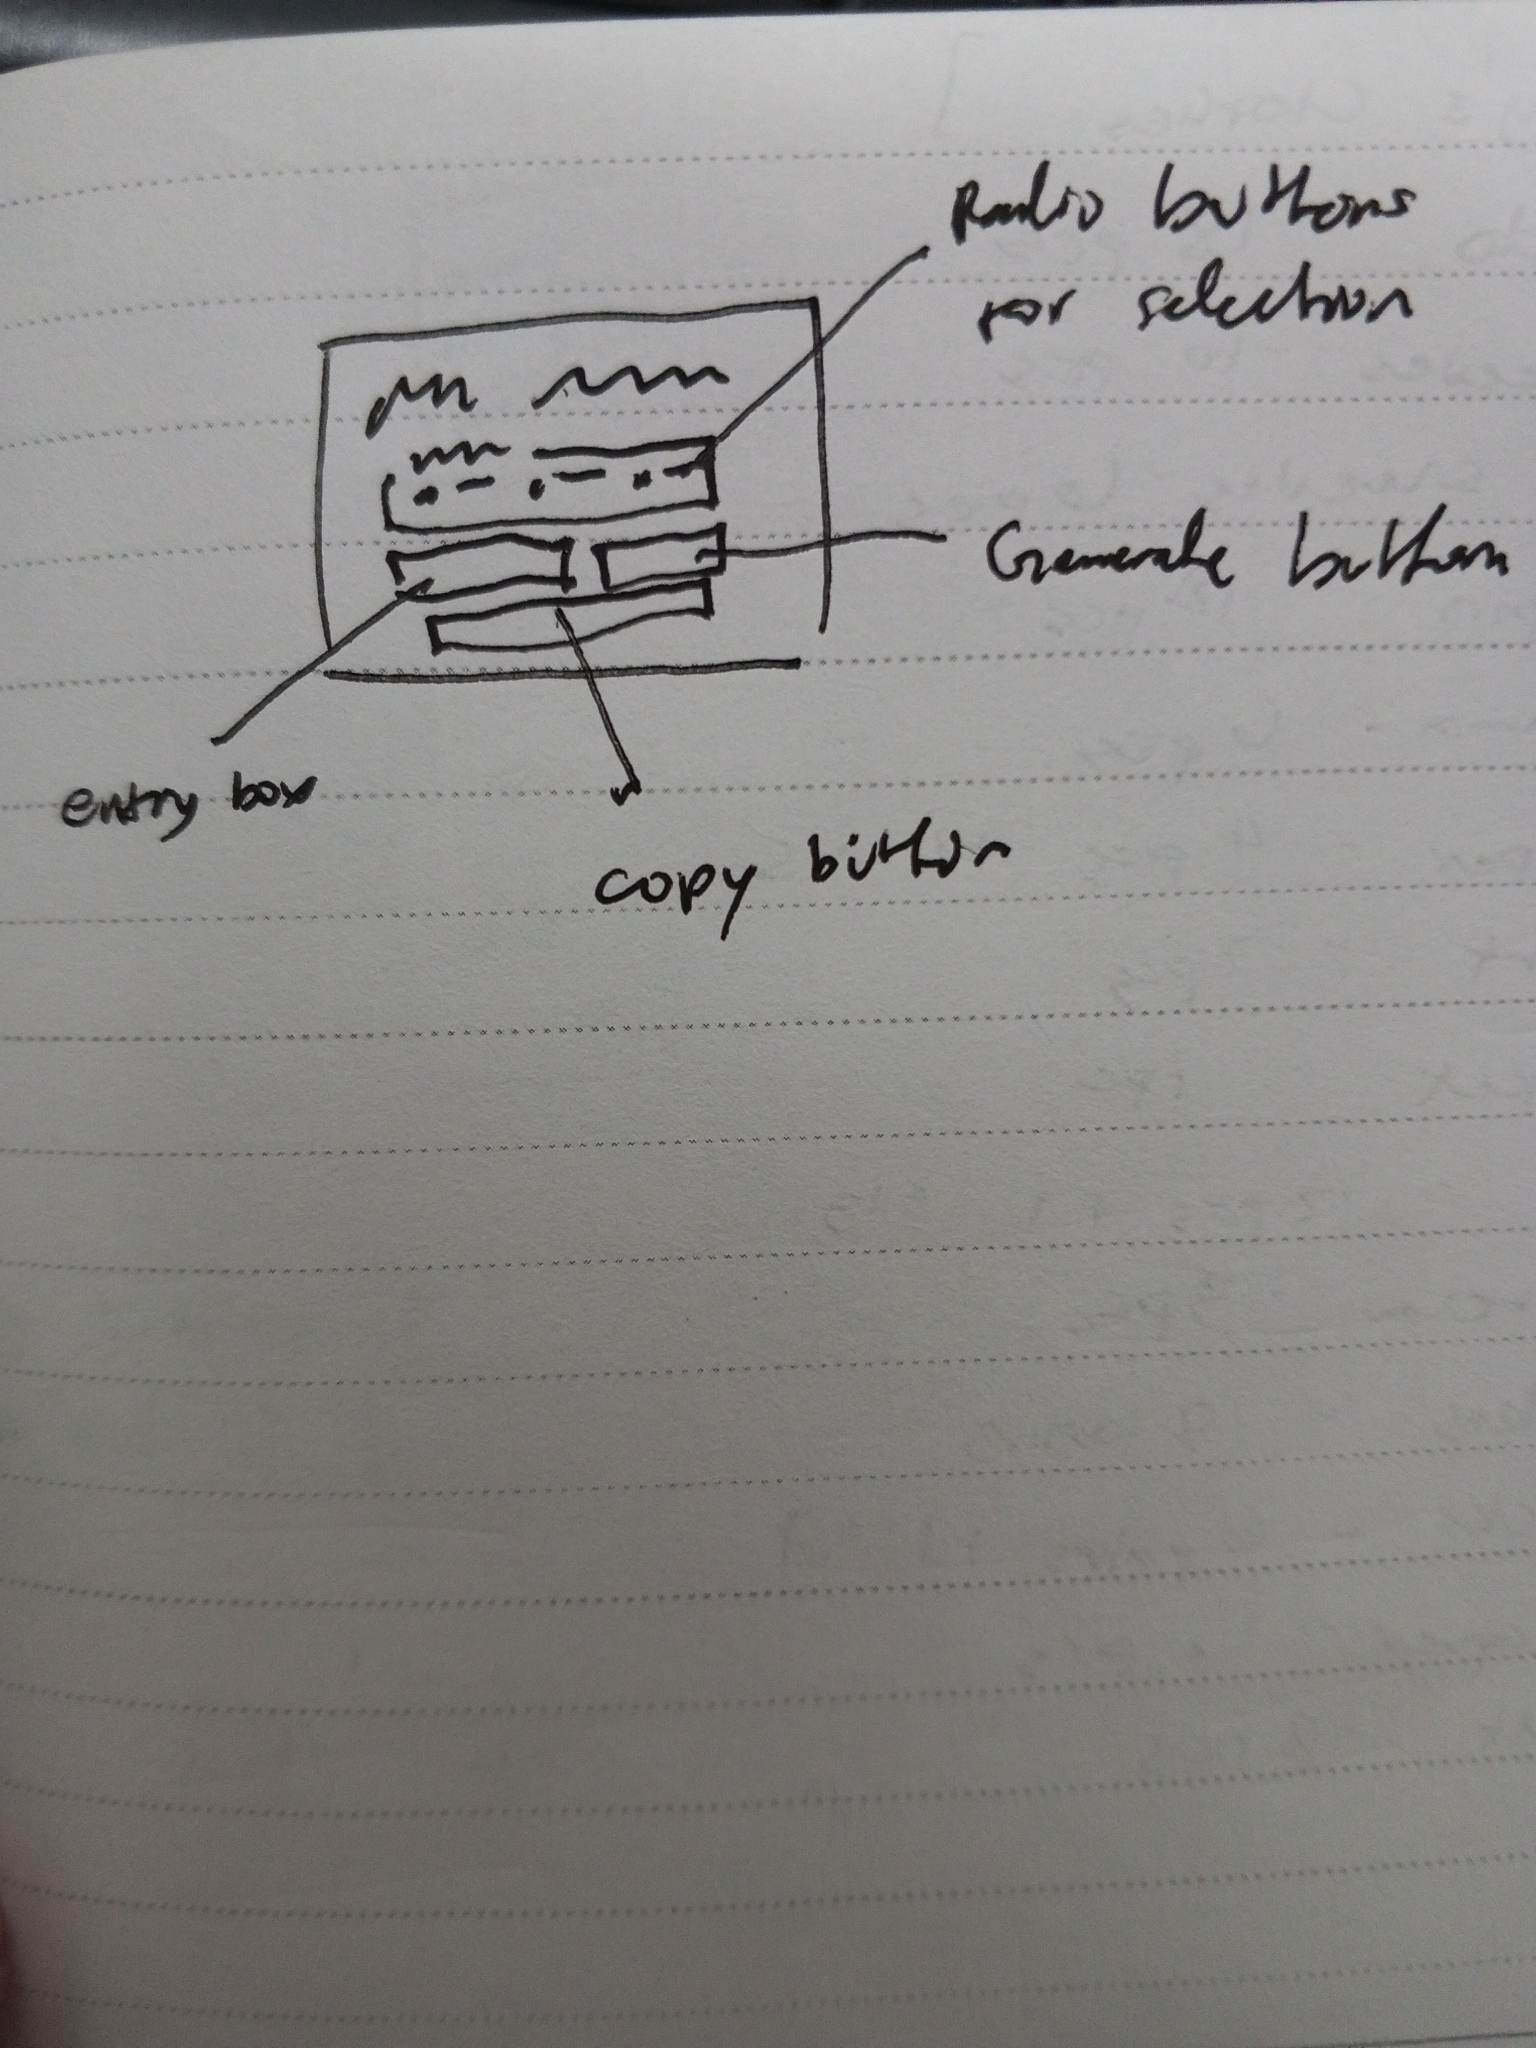 Radio buttons
for selection
Generate button
entry box
copy button